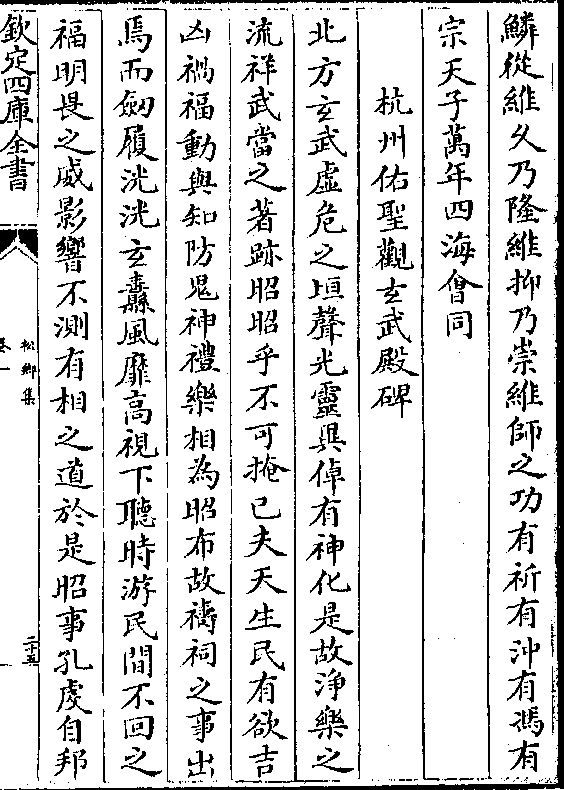 鱗從維久乃隆維抑乃崇維師之功有祈有沖有馮有
宗天子萬年四海㑹同
杭州佑聖觀玄武殿碑
北方玄武虛危之垣聲光靈異倬有神化是故淨樂之
流祥武當之著跡昭昭乎不可掩已夫天生民有欲吉
凶禍福動與知防鬼神禮樂相為昭布故禱祠之事出
焉而劒履洸洸玄纛風靡高視下聽時游民間不回之
福明畏之威影響不測有相之道於是昭事孔䖍自邦
欽定四庫全書
松鄉集
卷一
二十五